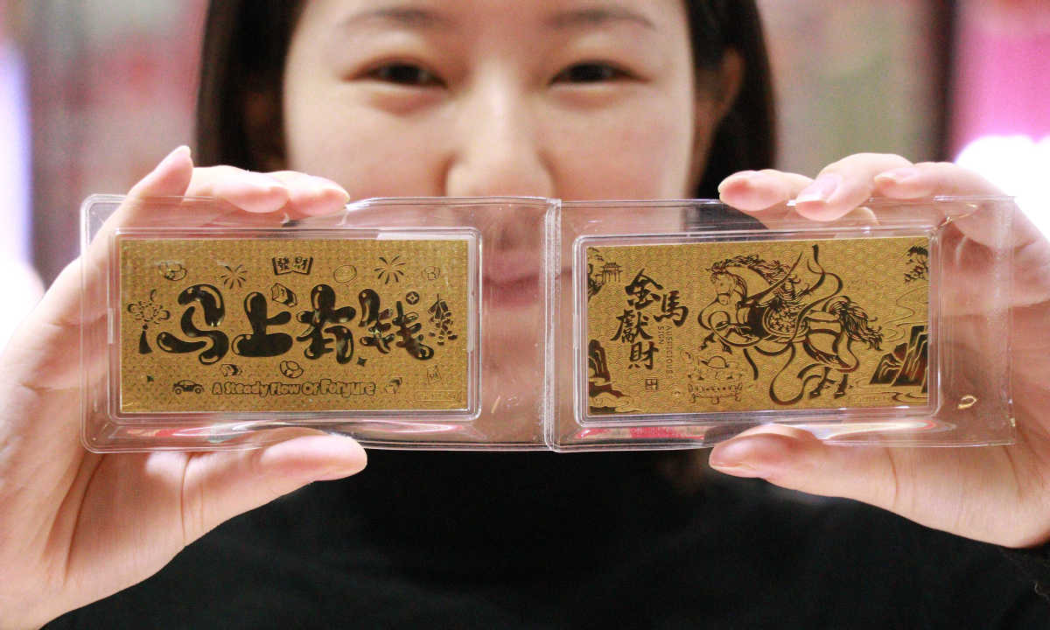 马上有钱
A Steady Flow Of Fortune
金馬獻財
AUSPICIOUS
SIGN